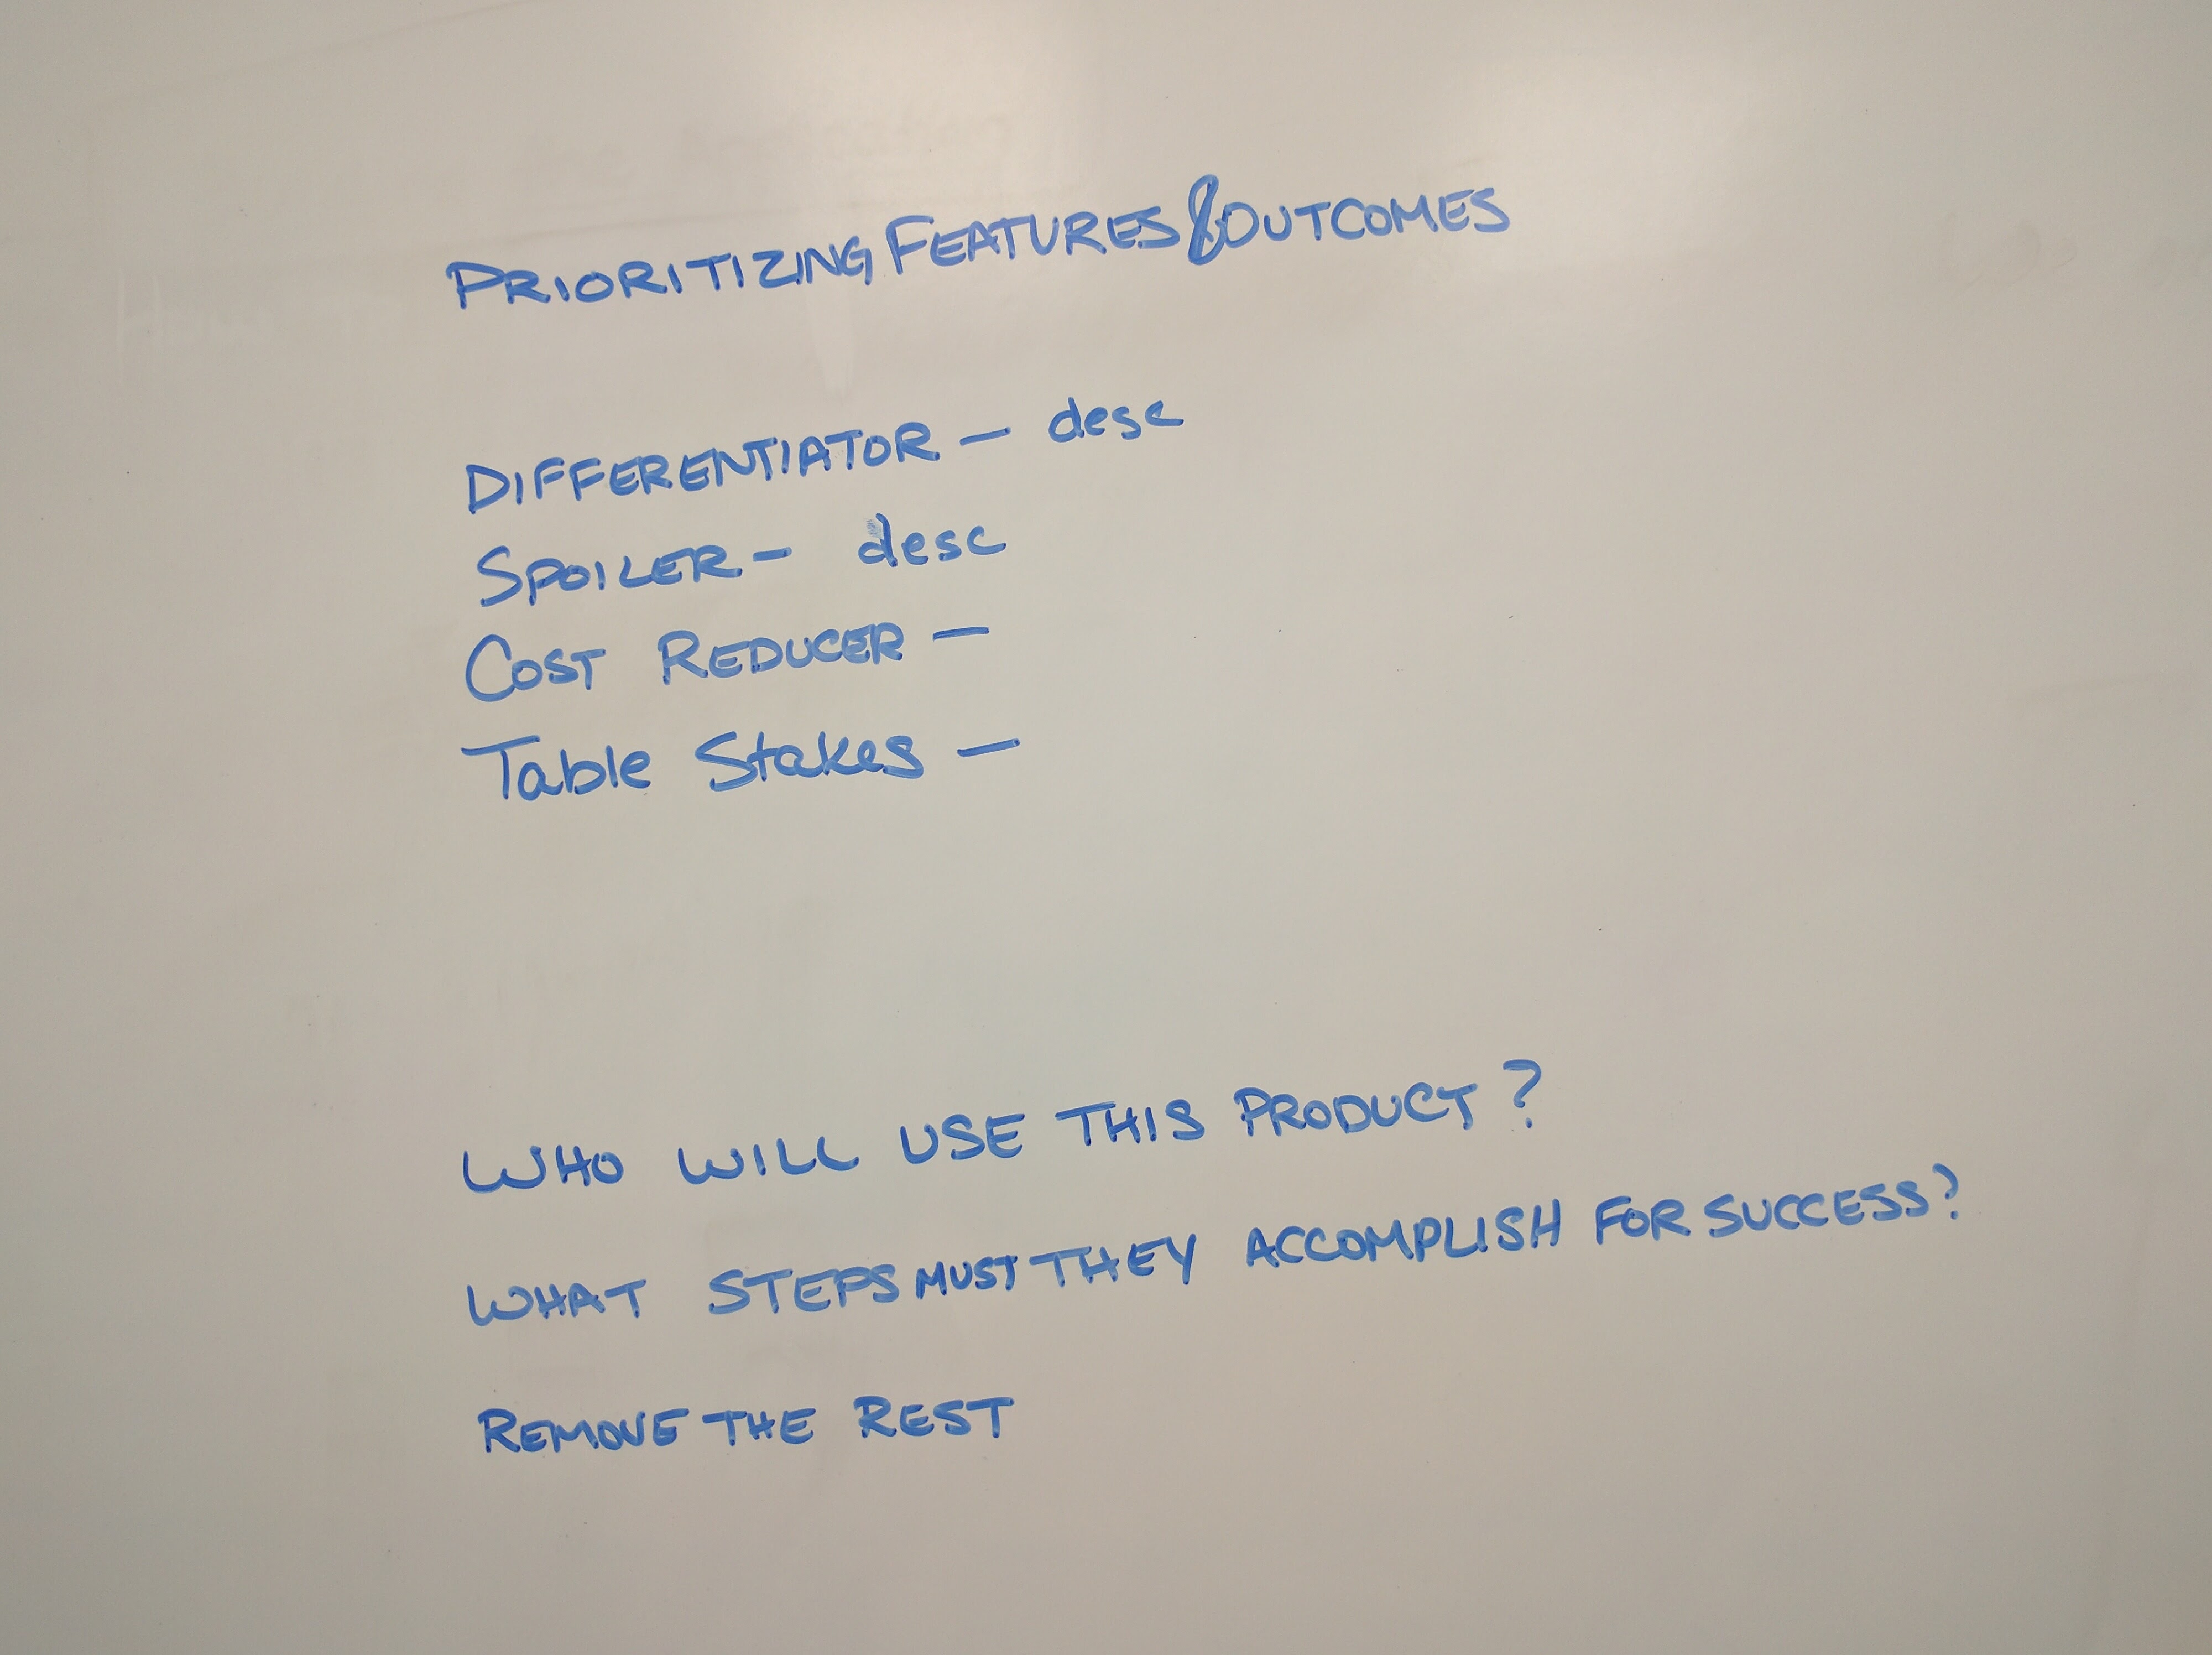 PRIORITIZING FEATURES & OUTCOMES
DIFFERENTIATOR – desc
SPOILER – desc
COST REDUCER –
Table Stakes –
WHO WILL USE THIS PRODUCT?
WHAT STEPS MUST THEY ACCOMPLISH FOR SUCCESS?
REMOVE THE REST